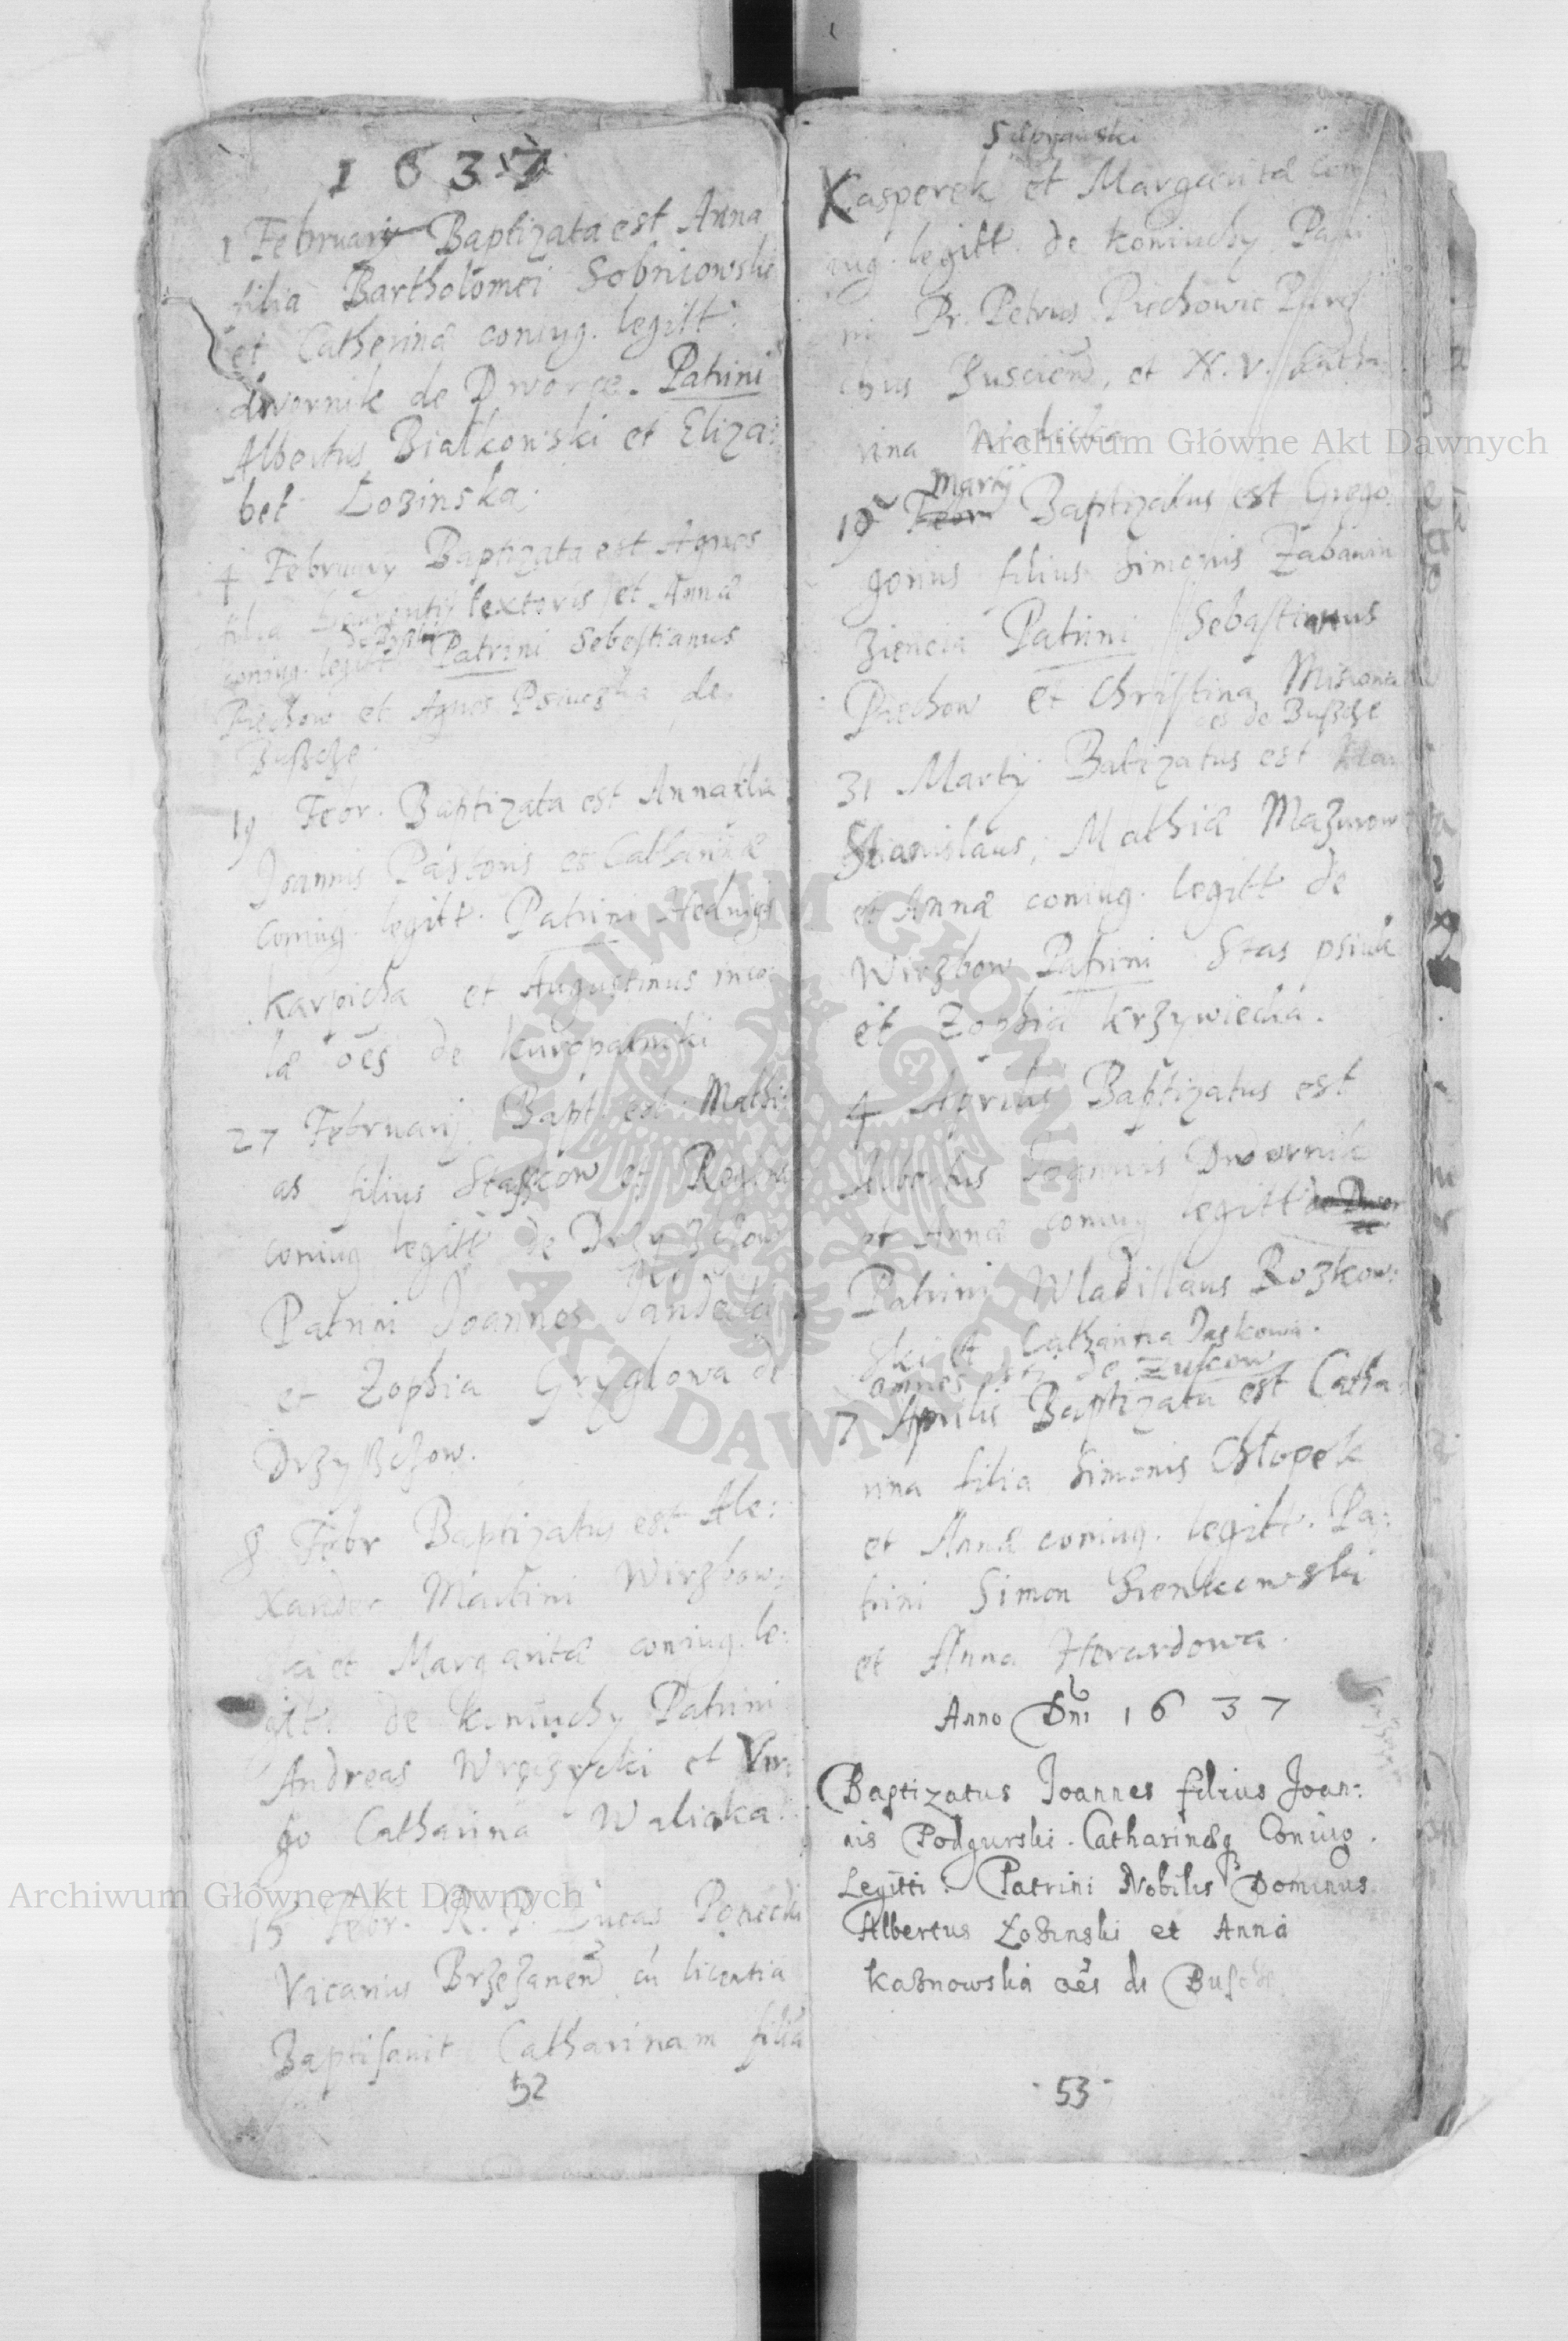 1 6 3 7
1 Februarij Baptizata est Anna
filia Bartholomei Sobniowski
et Catherinæ coniug. legitt.
dwornik de Dworce. Patrini
Albertus Białkowski et Eliza:
bet Łozinska.
4 February Baptizata est Agnes
filia textoris et Annæ
coniug. legitt Patrini Sebastianus
Piechow et Agnes de
Bußcze.
19 Febr. Baptizata est Anna filia
Joannis Pastoris et Catharinæ
Coniug. legitt. Patrini Hedwigis
Karpicha et Augustinus inco:
læ oēs de Kuropatniki
27 Februarij Bapt. est Mathi:
as filius Staßkow et Reginæ
coniug legitt de Drzyßczow
Patrini Joannes
et Zophia Gryglowa de
Drzyßczow.
8 Febr Baptizatus est Ale:
xander Martini Wirzbow:
ski et Margaritæ coniug. le:
gitt. de Koniuchy Patrini
Andreas et Vir:
go Catharina Waliska.
15 Febr. R. P. Lucas Ponecki
Vicarius Brzezanen cū licentia
Baptisauit Catharinam filiā
52
Kasperek et Margaritæ con
iug. legitt. de Koniuchy Patri
ni Pr. Petrus Piechowic Paro
chus Buscien, et N. V. Catha
rina
Martij
19 Febr Baptizatus est Grego
gorius filius Simonis
Patrini Sebastianus
Piechow et Christina
oēs de Bußcze
31 Martij Batizatus est
Stanislaus, Mathiæ Mazurow
et Annæ coniug. legitt de
Wirzbow Patrini Stas
et Zophia Krzywiecka.
4 Aprilis Baptizatus est
Albertus Joannis Dwornik
et Annæ coniug legitt de Dwor
Patrini Wladislaus Rozkow:
ski et Catharina Jaskowa.
omnes de
7 Aprilis Baptizata est Catha:
rina filia Simonis Chłopek
et Annæ coniug. legitt. Pa:
trini Simon Sienkowski
et Anna Herardowa.
Anno Dni 1 6 3 7
Baptizatus Joannes filius Joan:
nis Podgurski. Catharinæq Coniug.
Legitti. Patrini Nobilis Dominus
Albertus Łozinski et Anna
Kaznowska oēs de Buscze
- 53 -
Archiwum Główne Akt Dawnych
Archiwum Główne Akt Dawnych
ARCHIWUM GŁÓWNE AKT DAWNYCH